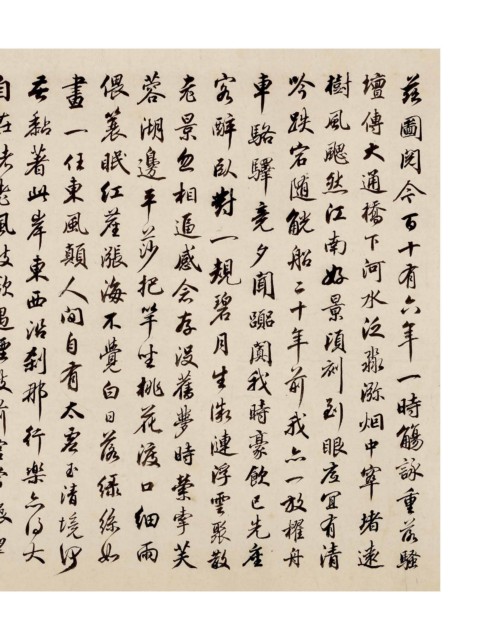 茲圖閱今百十有六年一時觴詠重落騷
壇傳大通橋下河水泛淼瀰烟中窣堵遠
樹風颸然江南好景頃刻到眼底宜有清
吟跌宕隨觥船二十年前我亦一放櫂舟
車駱驛竟夕聞蹏闐我時豪飲已先座
客醉臥對一規碧月生漪漣浮雲聚散
老景忽相逼感念存沒舊夢時縈牽芙
蓉湖邊平莎把竿坐桃花渡口細雨
偎蓑眠紅崖漲海不覺白日落緑絲如
畫一任東風顛人間自有太虛玉清境何
苦黏著此岸東西沿剎那行樂亦得大
自在